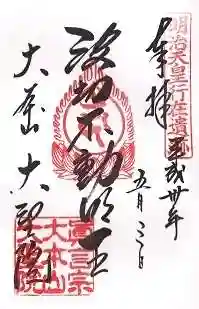 明治天皇行在遺跡
奉拝
平成卅年
五月三日
波切不動明王
大本山 大聖院
真言宗
大本山